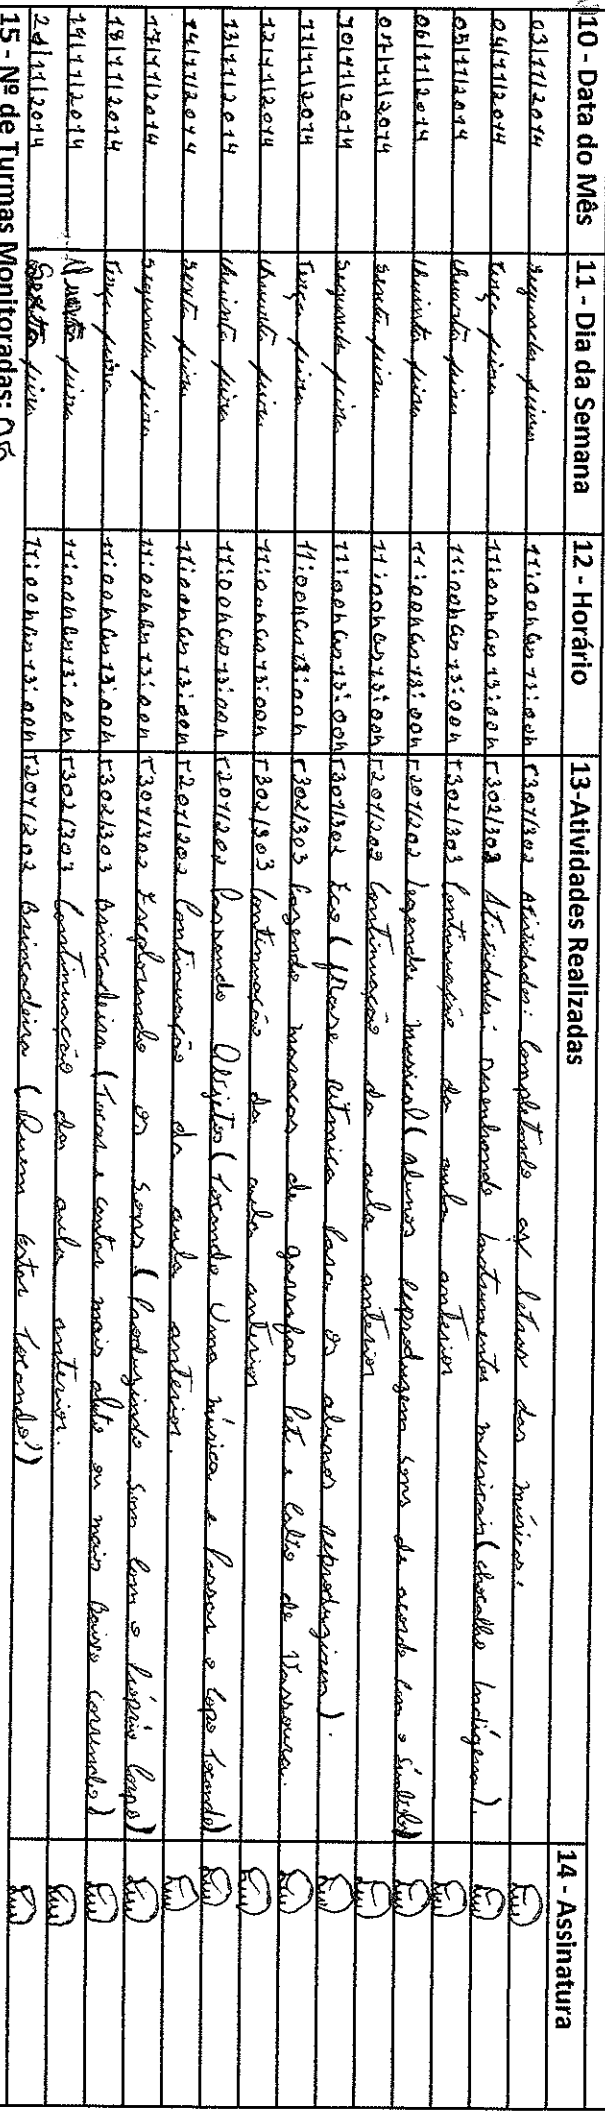 10 - Data do Mês 11 - Dia da Semana 12 - Horário 13-Atividades Realizadas 14 - Assinatura
03/11/2014 segunda feira 11:00h às 13:00h T301/302 Atividades: Completando as letras das músicas.
04/11/2014 terça feira 11:00h às 13:00h T302/303 Atividades: Desenhando instrumentos musicais (chocalho Indígena).
05/11/2014 Quarta feira 11:00h às 13:00h T302/303 Continuação da aula anterior
06/11/2014 Quinta feira 11:00h às 13:00h T201/202 Legenda musical (alunos reproduzem sons de acordo com o símbolo)
07/11/2014 sexta feira 11:00h às 13:00h T201/202 Continuação da aula anterior
10/11/2014 segunda feira 11:00h às 13:00h T301/302 Eco (frase ritmica para os alunos reproduzirem).
11/11/2014 Terça feira 11:00h às 13:00h T302/303 fazendo maracas de garrafas Pet e Cabo de Vassoura.
12/11/2014 Quarta feira 11:00h às 13:00h T302/303 Continuação da aula anterior
13/11/2014 Quinta feira 11:00h às 13:00h T201/202 Passando Objetos (Tocando Uma música e Passar o Copo Tocando)
14/11/2014 sexta feira 11:00h às 13:00h T201/202 Continuação da aula anterior.
17/11/2014 segunda feira 11:00h às 13:00h T301/302 Explorando os Sons (Produzindo som Com o Próprio Corpo)
18/11/2014 terça feira 11:00h às 13:00h T302/303 Brincadeira (Tocar e cantar mais alto ou mais Baixo Correndo)
19/11/2014 Quarta feira 11:00h às 13:00h T302/303 Continuação da aula anterior.
21/11/2014 Sexta feira 11:00h às 13:00h T201/202 Brincadeira (Quem Estar Tocando!)
15 - Nº de Turmas Monitoradas: 05